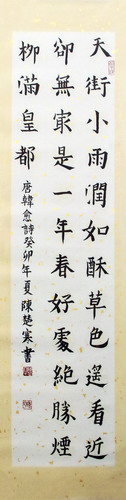 天街小雨潤如酥草色遙看近
卻無最是一年春好處絕勝煙
柳滿皇都
唐韓愈詩癸卯年夏陳楚寒書